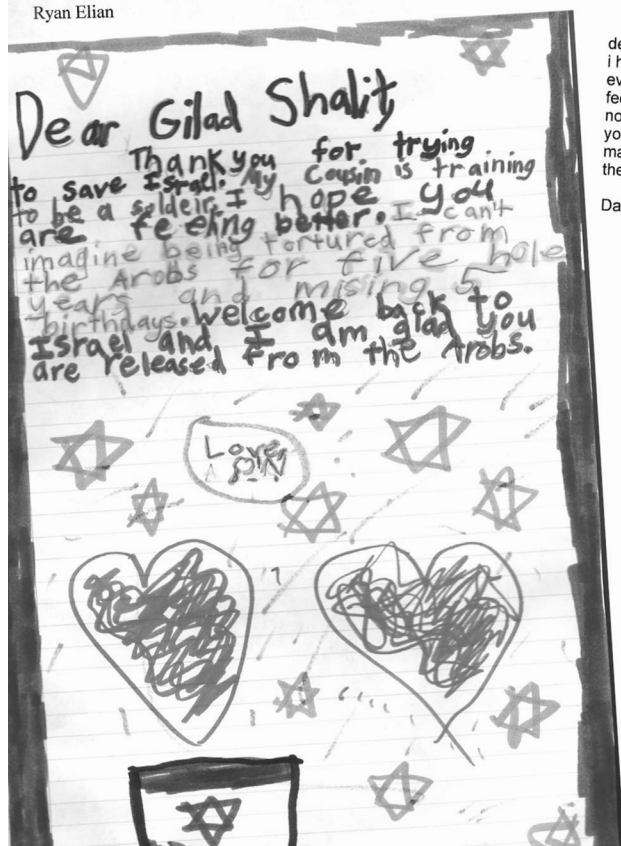 Ryan Elian
Dear Gilad Shalit,
Thank you for trying
to save Israel. My Cousin is training
to be a soldeir. I hope you
are feeling better. I can't
imagine being tortured from
the Arobs for five hole
years and mising 5
birthdays. Welcome back to
Israel and I am glad you
are released from the Arobs.
Love,
de
i h
ev
fee
no
yo
ma
the
Da